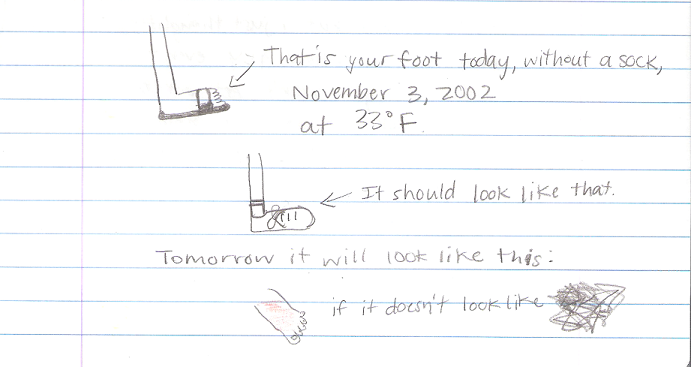 That is your foot today, without a sock,
November 3, 2002
at 33°F.
It should look like that.
Tomorrow it will look like this:
if it doesn't look like